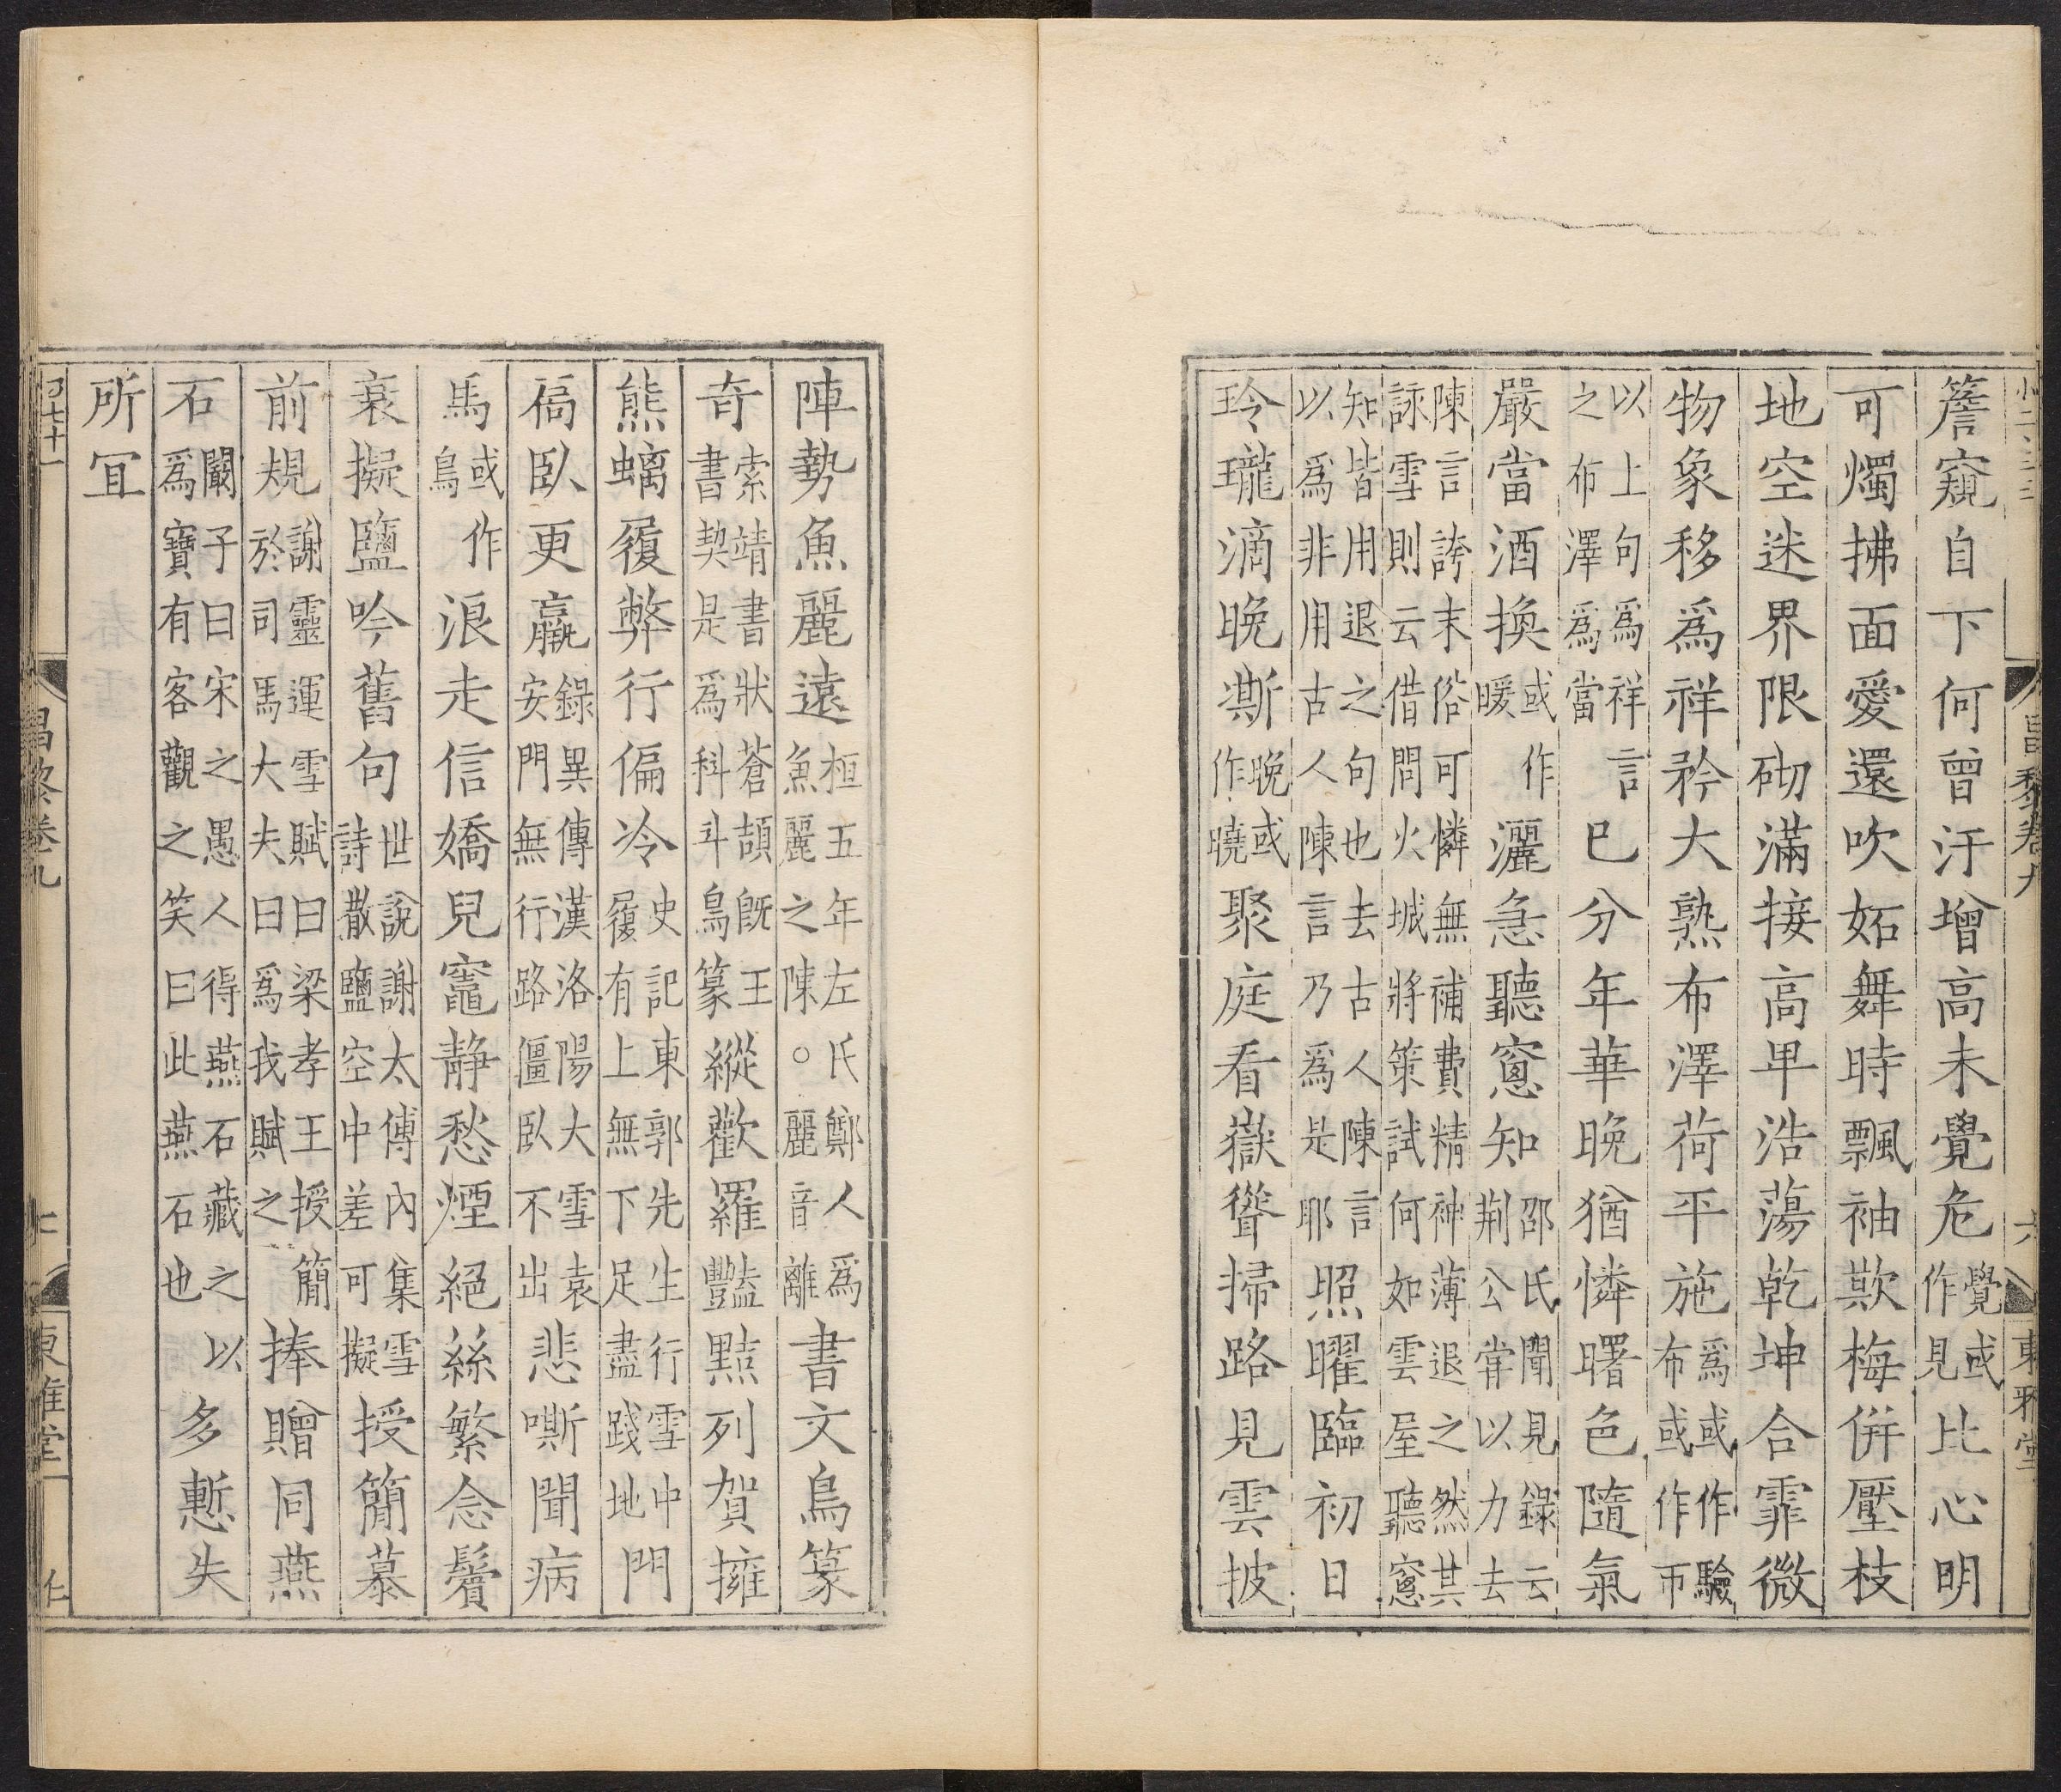 昌黎卷九 六 東雅堂
簷窺自下何曾汙增高未覺危覺或作見比心明
可燭拂面愛還吹妬舞時飄袖欺梅併壓枝
地空迷界限砌滿接高卑浩蕩乾坤合霏微
物象移爲祥矜大熟布澤荷平施爲或作驗布或作帀
以上句爲祥言之布澤爲當巳分年華晚猶憐曙色隨氣
嚴當酒換或作暖灑急聽窻知邵氏聞見録云荆公甞以力去
陳言誇末俗可憐無補費精神薄退之然其詠雪則云借問火城將策試何如雲屋聽窻
知皆用退之句也去古人陳言以爲非用古人陳言乃爲是耶照曜臨初日
玲瓏滴晚澌晚或作曉聚庭看嶽聳掃路見雲披
陣勢魚麗遠桓五年左氏鄭人爲魚麗之陳○麗音離書文鳥篆
奇索靖書狀蒼頡旣王書契是爲科斗鳥篆縱歡羅豔黠列賀擁
熊螭履弊行偏冷史記東郭先生行雪中履有上無下足盡踐地門
扄臥更羸録異傳漢洛陽大雪袁安門無行路僵臥不出悲嘶聞病
馬或作鳥浪走信嬌兒竈静愁煙絕絲繁念鬢
衰擬鹽吟舊句世說謝太傅內集雪詩散鹽空中差可擬授簡慕
前規謝靈運雪賦曰梁孝王授簡於司馬大夫曰爲我賦之捧贈同燕
石闞子曰宋之愚人得燕石藏之以爲寶有客觀之笑曰此燕石也多慙失
所宜
昌黎卷九 七 東雅堂